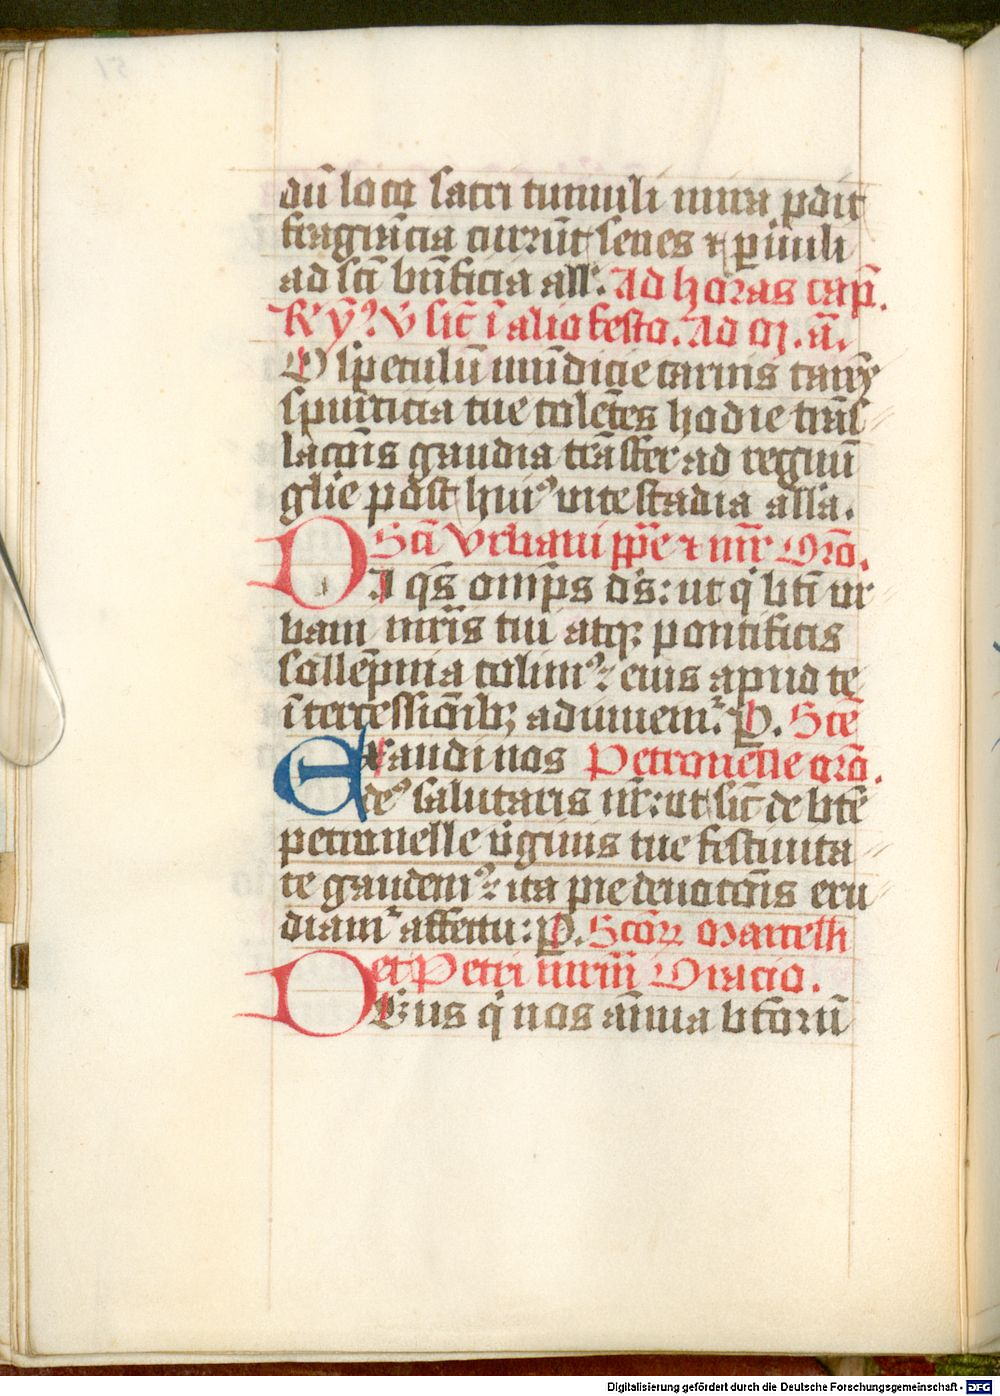 dū locꝫ sacri tumuli mira ꝑdit
fragrācia currūt senes ⁊ ꝑuuli
ad scī bn̄ficia all'. Ad horas cap̄.
R' ẏ' ℣ sic̄ ī alio festo. Ad m. ā.
O speculū mūdicie carnis caruȳ
spurcicia tue colētes hodie trās
lacōnis gaudia trāsfer ad regnū
glīe post hui⁹ vite stadia alla.
Scī Vrbani pp̄e ⁊ mr̄ Orō.
DA qs̄ omp̄s ds̄: ut q̇ btī ur
bani mr̄is tui atqꝫ pontificis
sollēpnia colim⁹: eius apud te
ītercessiōnibꝫ adiuuem̄. P. Scē
Exaudi nos Petronelle orō.
de⁹ salutaris nr̄: ut sic̄ de btē
petronelle v̇ginis tue festiuita
te gaudem⁹: ita pie deuocōnis eru
diam̄ affectu: P. Scōꝝ Marcelli
et Petri mrm̄ Oracio.
DEus q̇ nos ānua btōrū
Digitalisierung gefördert durch die Deutsche Forschungsgemeinschaft - DFG